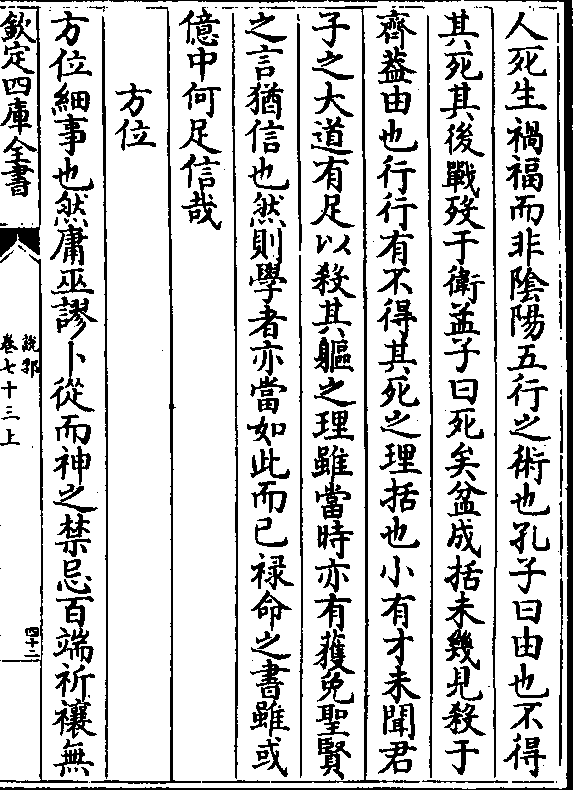 人死生禍福而非陰陽五行之術也孔子曰由也不得
其死其後戰歿于衛孟子曰死矣盆成括未幾見殺于
齊葢由也行行有不得其死之理括也小有才未聞君
子之大道有足以殺其軀之理雖當時亦有獲免聖賢
之言猶信也然則學者亦當如此而已禄命之書雖或
億中何足信哉
方位
方位細事也然庸巫謬卜從而神之禁忌百端祈禳無
欽定四庫全書
說郛
卷七十三上
四十二